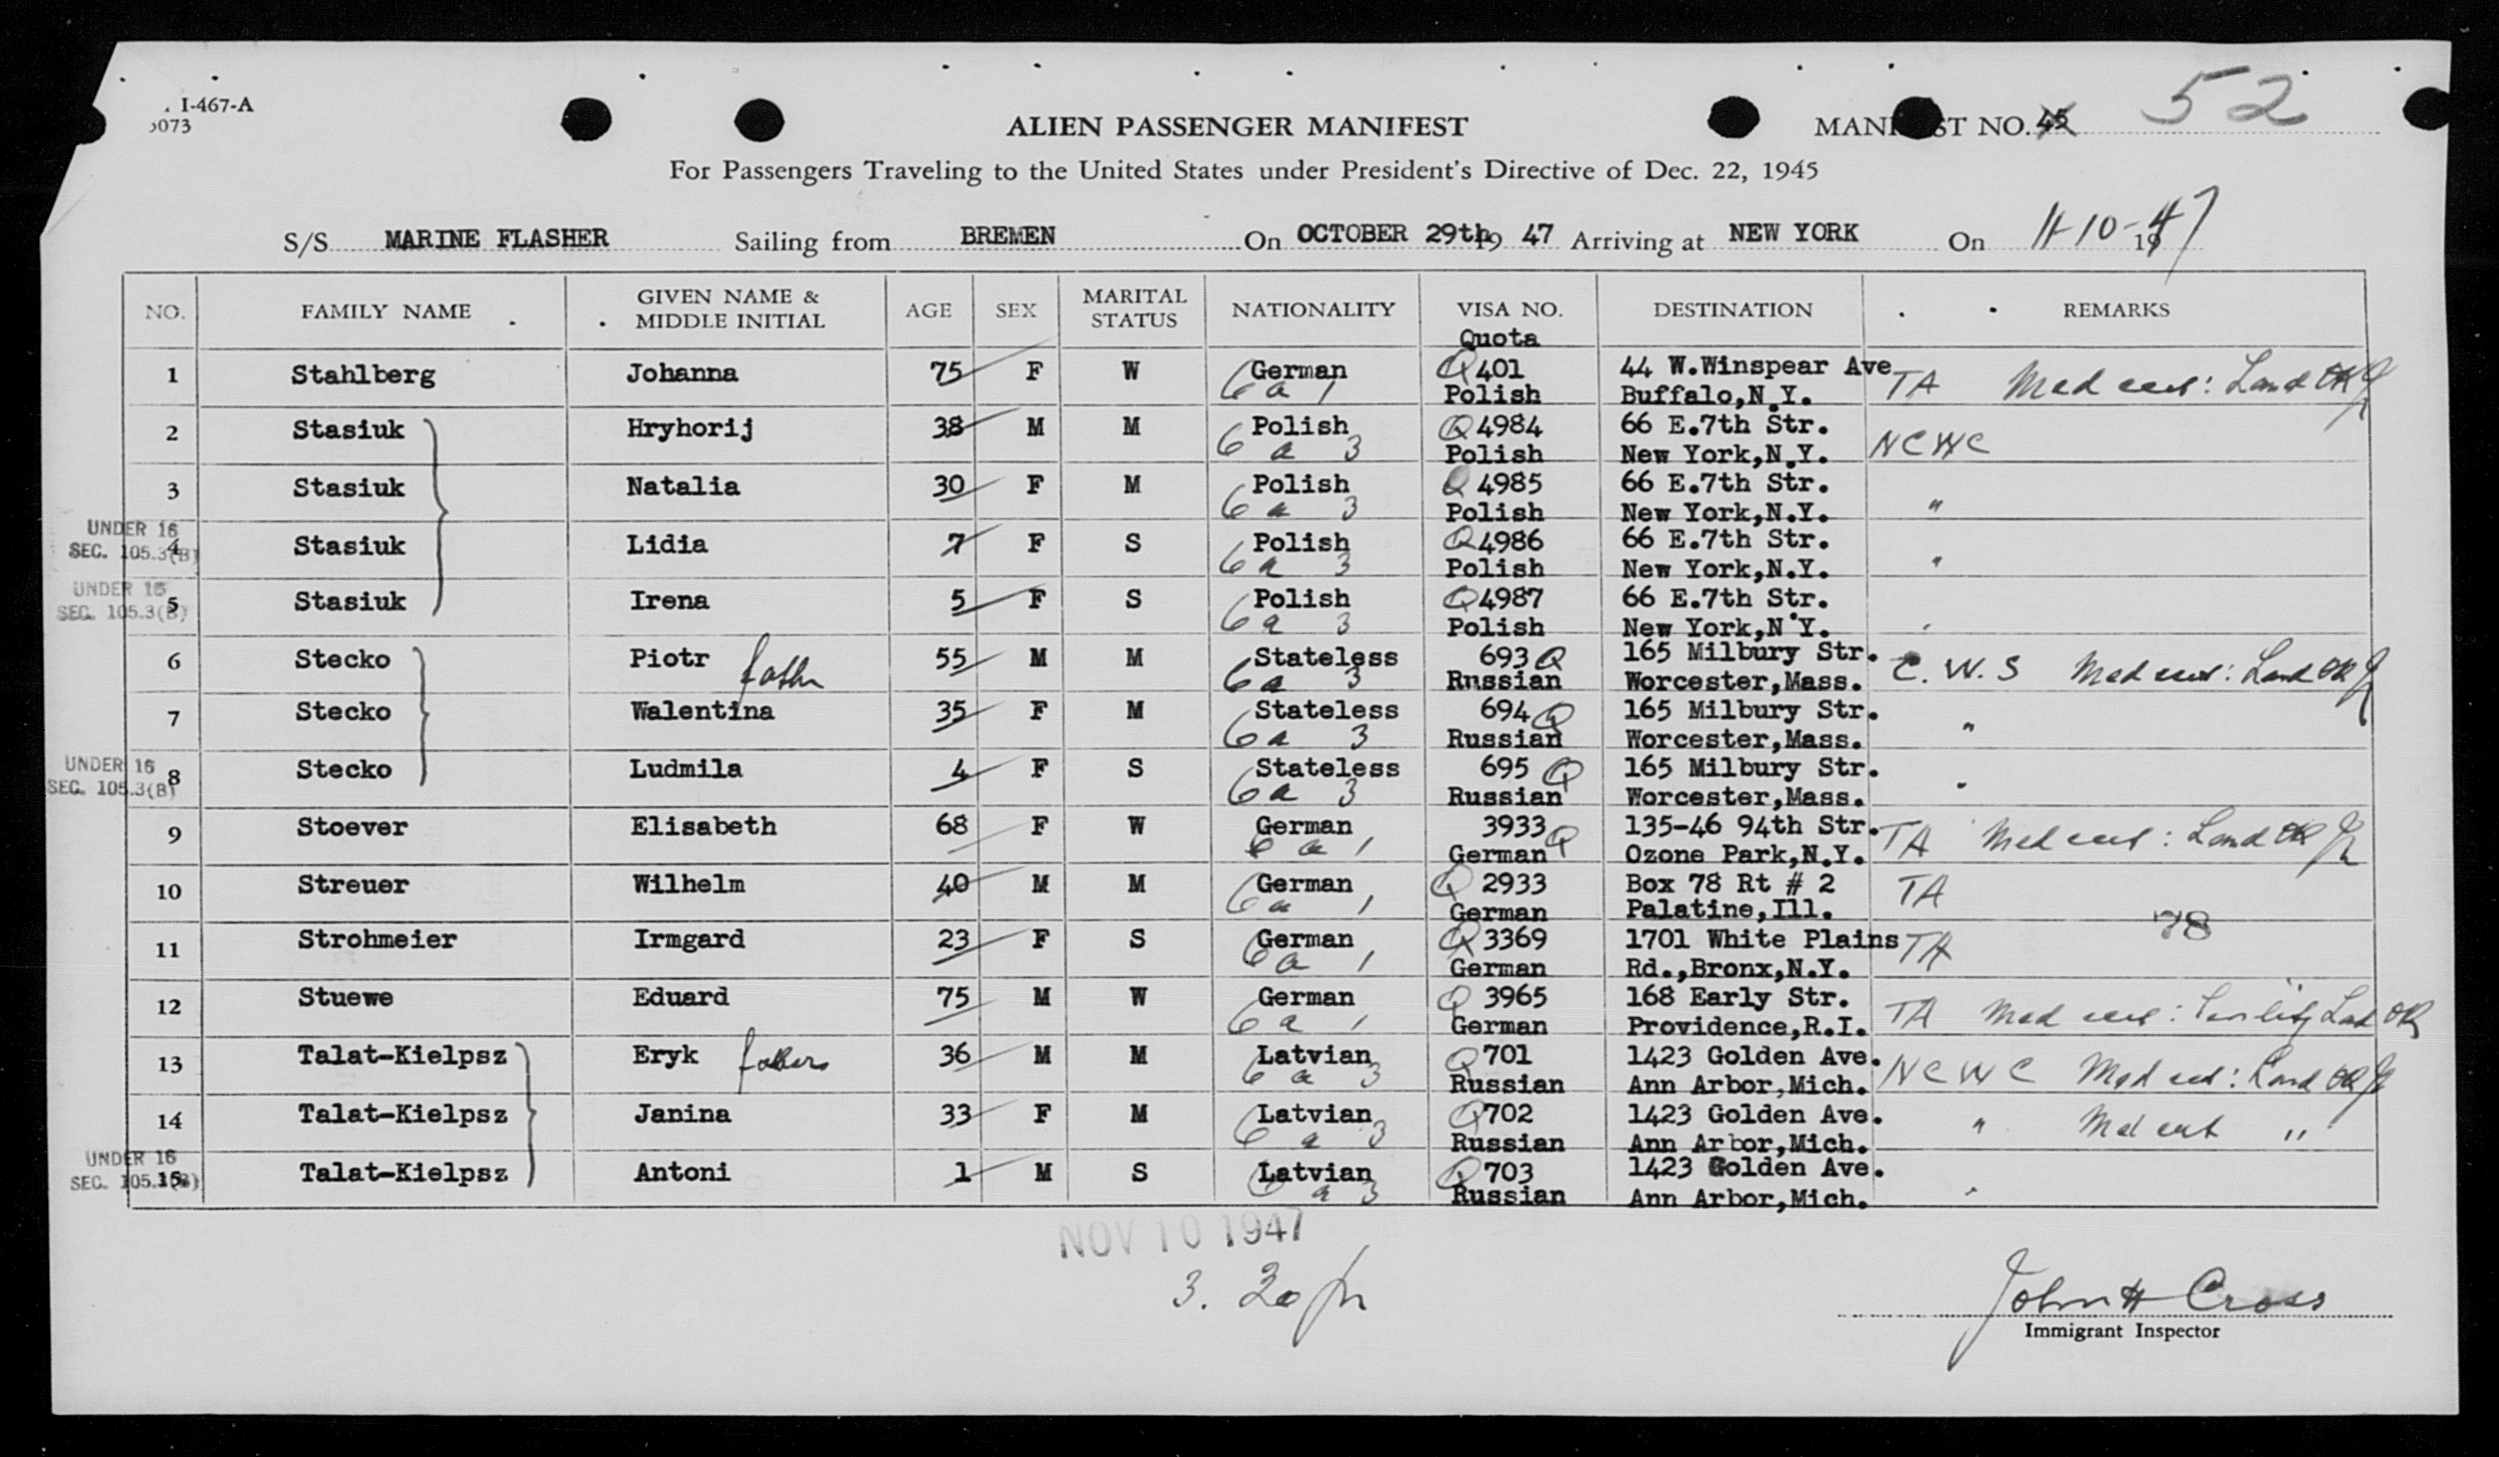 I-467-A
5073
ALIEN PASSENGER MANIFEST
MANIFEST NO. 45 52
For Passengers Traveling to the United States under President's Directive of Dec. 22, 1945
S/S MARINE FLASHER Sailing from BREMEN On OCTOBER 29th 19 47 Arriving at NEW YORK On 11-10-1947
NO. FAMILY NAME GIVEN NAME & MIDDLE INITIAL AGE SEX MARITAL STATUS NATIONALITY VISA NO. DESTINATION REMARKS
Quota
1 Stahlberg Johanna 75 F W German Q 401 44 W.Winspear Ave TA Med cert: Land OK
6 a 1 Polish Buffalo,N.Y.
2 Stasiuk Hryhorij 38 M M Polish Q 4984 66 E.7th Str. NCWC
6 a 3 Polish New York,N.Y.
3 Stasiuk Natalia 30 F M Polish Q 4985 66 E.7th Str. "
6 a 3 Polish New York,N.Y.
UNDER 16
SEC. 105.3(B)
4 Stasiuk Lidia 7 F S Polish Q 4986 66 E.7th Str. "
6 a 3 Polish New York,N.Y.
UNDER 16
SEC. 105.3(B)
5 Stasiuk Irena 5 F S Polish Q 4987 66 E.7th Str.
6 a 3 Polish New York,N.Y. "
6 Stecko Piotr father 55 M M Stateless 693 Q 165 Milbury Str. C.W.S Med cert: Land OK
6 a 3 Russian Worcester,Mass.
7 Stecko Walentina 35 F M Stateless 694 Q 165 Milbury Str. "
6 a 3 Russian Worcester,Mass.
UNDER 16
SEC. 105.3(B)
8 Stecko Ludmila 4 F S Stateless 695 Q 165 Milbury Str. "
6 a 3 Russian Worcester,Mass.
9 Stoever Elisabeth 68 F W German 3933 Q 135-46 94th Str. TA Med cert: Land OK
6 a 1 German Ozone Park,N.Y.
10 Streuer Wilhelm 40 M M German Q 2933 Box 78 Rt # 2 TA
6 a 1 German Palatine,Ill.
78
11 Strohmeier Irmgard 23 F S German Q 3369 1701 White Plains TA
6 a 1 German Rd.,Bronx,N.Y.
12 Stuewe Eduard 75 M W German Q 3965 168 Early Str. TA Med cert: Senility Land OK
6 a 1 German Providence,R.I.
13 Talat-Kielpsz Eryk father 36 M M Latvian Q 701 1423 Golden Ave. NCWC Med cert: Land OK
6 a 3 Russian Ann Arbor,Mich.
14 Talat-Kielpsz Janina 33 F M Latvian Q 702 1423 Golden Ave. " Med cert "
6 a 3 Russian Ann Arbor,Mich.
UNDER 16
SEC. 105.3(B)
15 Talat-Kielpsz Antoni 1 M S Latvian Q 703 1423 Golden Ave. "
6 a 3 Russian Ann Arbor,Mich.
NOV 10 1947
John H Cross
Immigrant Inspector